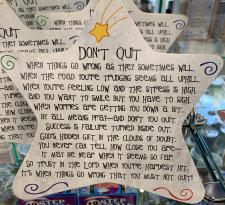 DON'T QUIT
WHEN THINGS GO WRONG AS THEY SOMETIMES WILL,
WHEN THE ROAD YOU'RE TRUDGING SEEMS ALL UPHILL,
WHEN YOU'RE FEELING LOW AND THE STRESS IS HIGH,
AND YOU WANT TO SMILE BUT YOU HAVE TO SIGH,
WHEN WORRIES ARE GETTING YOU DOWN A BIT,
BY ALL MEANS PRAY—AND DON'T YOU QUIT.
SUCCESS IS FAILURE TURNED INSIDE OUT,
GOD'S HIDDEN GIFT IN THE CLOUDS OF DOUBT.
YOU NEVER CAN TELL HOW CLOSE YOU ARE—
IT MAY BE NEAR WHEN IT SEEMS SO FAR.
SO TRUST IN THE LORD WHEN YOU'RE HARDEST HIT,
IT'S WHEN THINGS GO WRONG THAT YOU MUST NOT QUIT!